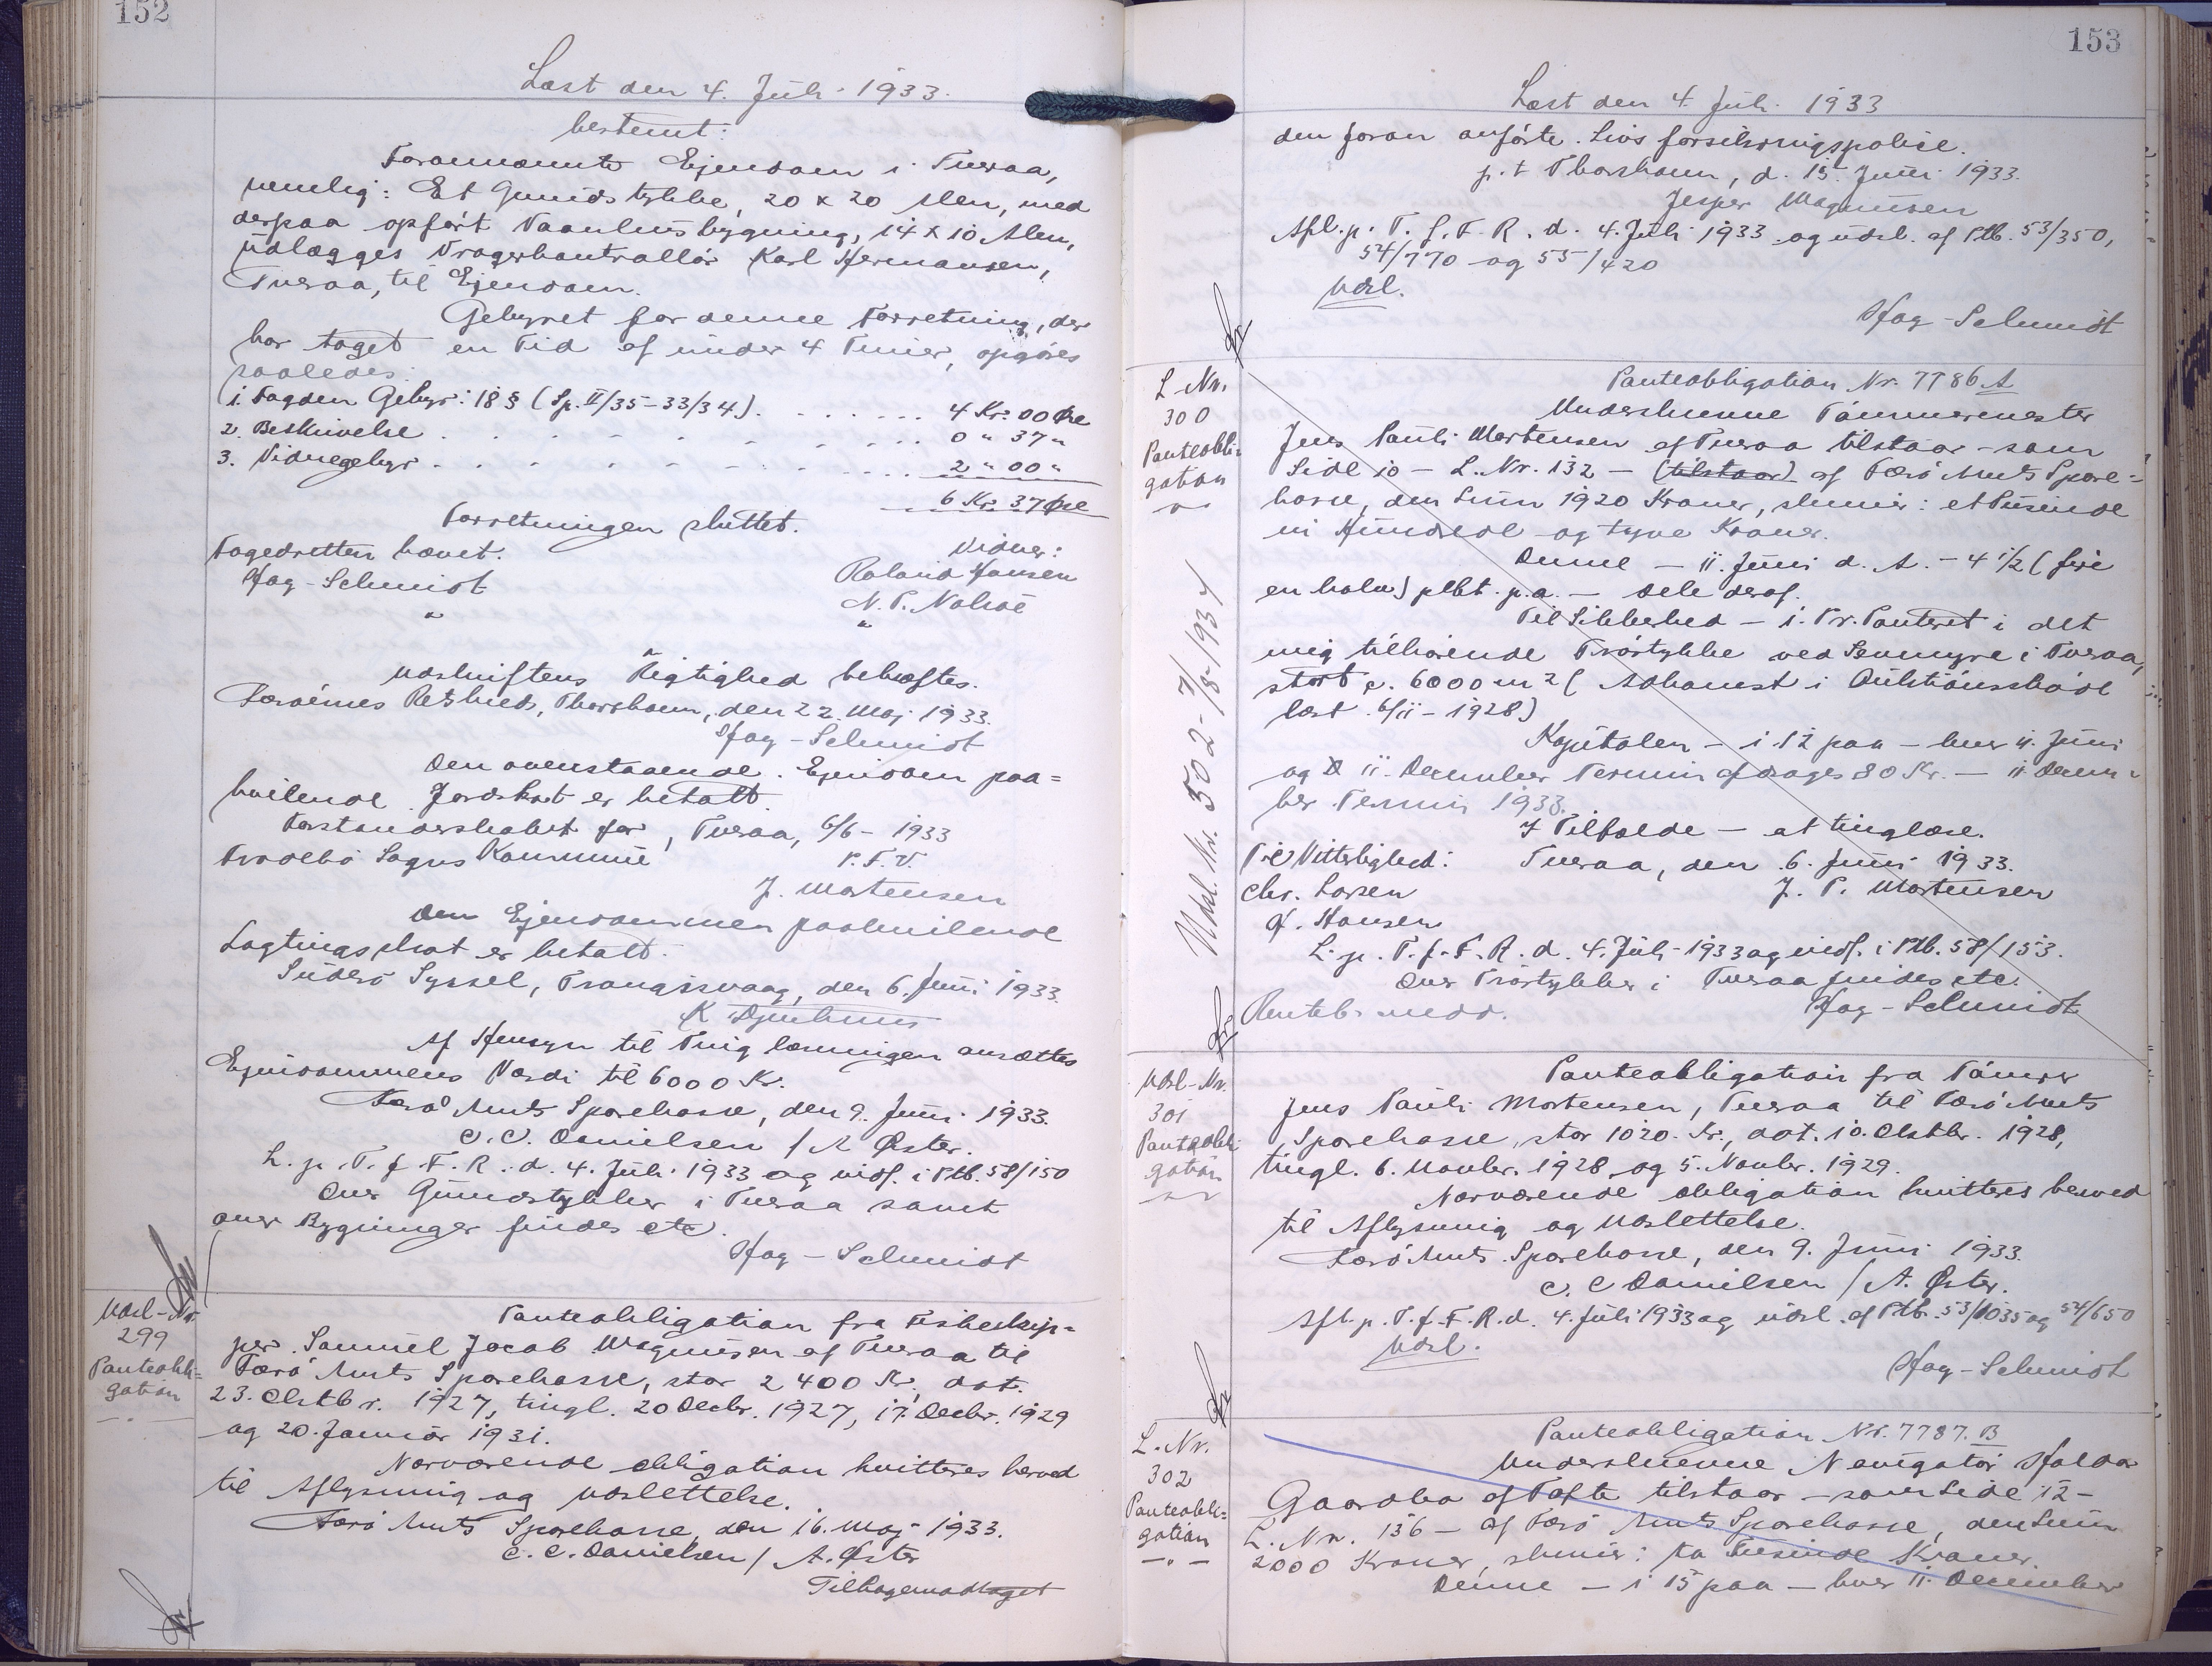 152
Læst den 4. Juli 1933.
bestemt:
Forannævnte Ejendom i Tveraa,
nemlig: Et Grundstykke, 20 x 20 Alen, med
derpaa opført Vaanhusbygning, 14 x 10 Alen,
udlægges Vragerkontrollør Karl Hermansen,
Tveraa, til Ejendom.
Gebyret for denne Forretning, der
har taget en Tid af under 4 Timer, opgøres
saaledes:
1. Fogden Gebyr: 18 § (Sp. II/35-33/34). 4 Kr. 00 Øre
2. Beskrivelse 0 " 37 "
3. Vidnegebyr 2 " 00 "
6 Kr. 37 Øre
Forretningen sluttet.
Fogedretten hævet. Vidner:
Hag-Schmidt Roland Hansen
" N. P. Nolsøe
"
Udskriftens Rigtighed bekræftes.
Færøernes Retskreds, Thorshavn, den 22. Maj 1933.
Hag-Schmidt
Den ovenstaaende Ejendom paa=
hvilende Jordskat er betalt.
Forstanderskabet for, Tveraa, 6/6 - 1933
Frodebø Sogns Kommune P. F. V
J. Mortensen
Den Ejendommen paahvilende
Lagtingsskat er betalt.
Suderø Syssel, Trangisvaag, den 6. Juni 1933.
K Djurhuus
Af Hensyn til Tinglæsningen ansættes
Ejendommens Værdi til 6000 Kr.
Færø Amts Sparekasse, den 9. Juni 1933.
C. C. Danielsen / A Øster.
L. p. T. f. F. R. d. 4. Juli 1933 og indf. i Ptb. 58/150
Over Grundstykker i Tveraa samt
over Bygninger findes etc.
Hag-Schmidt
Udsl-Nr.
299
Panteobli=
gation
Panteobligation fra Fiskeskip=
per Samuel Jacob Magnusen af Tveraa til
Færø Amts Sparekasse, stor 2400 Kr., dat.
23. Oktbr. 1927, tingl. 20 Decbr. 1927, 17. Decbr. 1929
og 20. Januar 1931.
Nærværende Obligation kvitteres herved
til Aflysning og Udslettelse.
Færø Amts Sparekasse, den 16. Maj 1933.
C. C. Danielsen / A. Øster
Tilbagemodtaget
153
Læst den 4. Juli 1933
den foran anførte Livsforsikringspolice.
p. t Thorshavn, d. 15. Juni 1933.
Jesper Magnusen
Afl. p. T. f. F. R. d. 4. Juli 1933 og udsl. af Ptb. 53/350,
54/770 og 55/420
Udsl.
Hag-Schmidt
L-Nr.
300
Panteobli=
gation
Udsl. Nr. 502 - 7/8 1934
Panteobligation Nr. 7786 A
Underskrevne Tømmermester
Jens Pauli Mortensen af Tveraa tilstaar - som
Side 10 - L. Nr. 132 - (tilstaar) af Færø Amts Spare=
kasse, den Sum 1920 Kroner, skriver: et Tusinde
ni Hundrede og tyve Kroner.
Denne - 11. Juni d. A. - 4 1/2 (fire
en halv) pCt. p. a. - dele deraf.
Til Sikkerhed - 1. Pr. Panteret i det
mig tilhørende Trøstykke ved Sevmyre i Tveraa,
stort c. 6000 m2 (Adkomst i Auktionsskøde
læst 6/11 - 1928)
Kapitalen - i 12 paa - hver 11. Juni
og 11. December Termin afdrages 80 Kr. - 11 Decem=
ber Termin 1933.
I Tilfælde - at tinglæse.
Til Vitterlighed: Tveraa, den 6. Juni 1933.
Chr. Larsen J. P. Mortensen
J. Hansen
L. p. T. f. F. R. d. 4. Juli 1933 og indf. i Ptb. 58/153.
Over Trøstykker i Tveraa findes etc.
Hag-Schmidt
Udsl-Nr.
301
Panteobli-
gation
Panteobligation fra Tømrer
Jens Pauli Mortensen, Tveraa til Færø Amts
Sparekasse, stor 1020. Kr., dat. 10. Oktbr. 1928,
tingl. 6. Novbr. 1928 og 5. Novbr. 1929.
Nærværende Obligation kvitteres herved
til Aflysning og Udslettelse.
Færø Amts Sparekasse, den 9. Juni 1933.
C. C Danielsen / A. Øster.
Afl. p. T. f. F. R. d. 4. Juli 1933 og udsl. af Ptb. 53/1035 og 54/650
Udsl.
Hag-Schmidt
L. Nr.
302
Panteobli=
gation
Panteobligation Nr. 7787. B
Underskrevne Navigatør Haldor
Gaardbo af Tofte tilstaar - som Side 12 -
L. Nr. 136 - af Færø Amts Sparekasse, den Sum
2000 Kroner, skriver: to Tusinde Kroner.
Denne - i 15 paa - hver 11. December